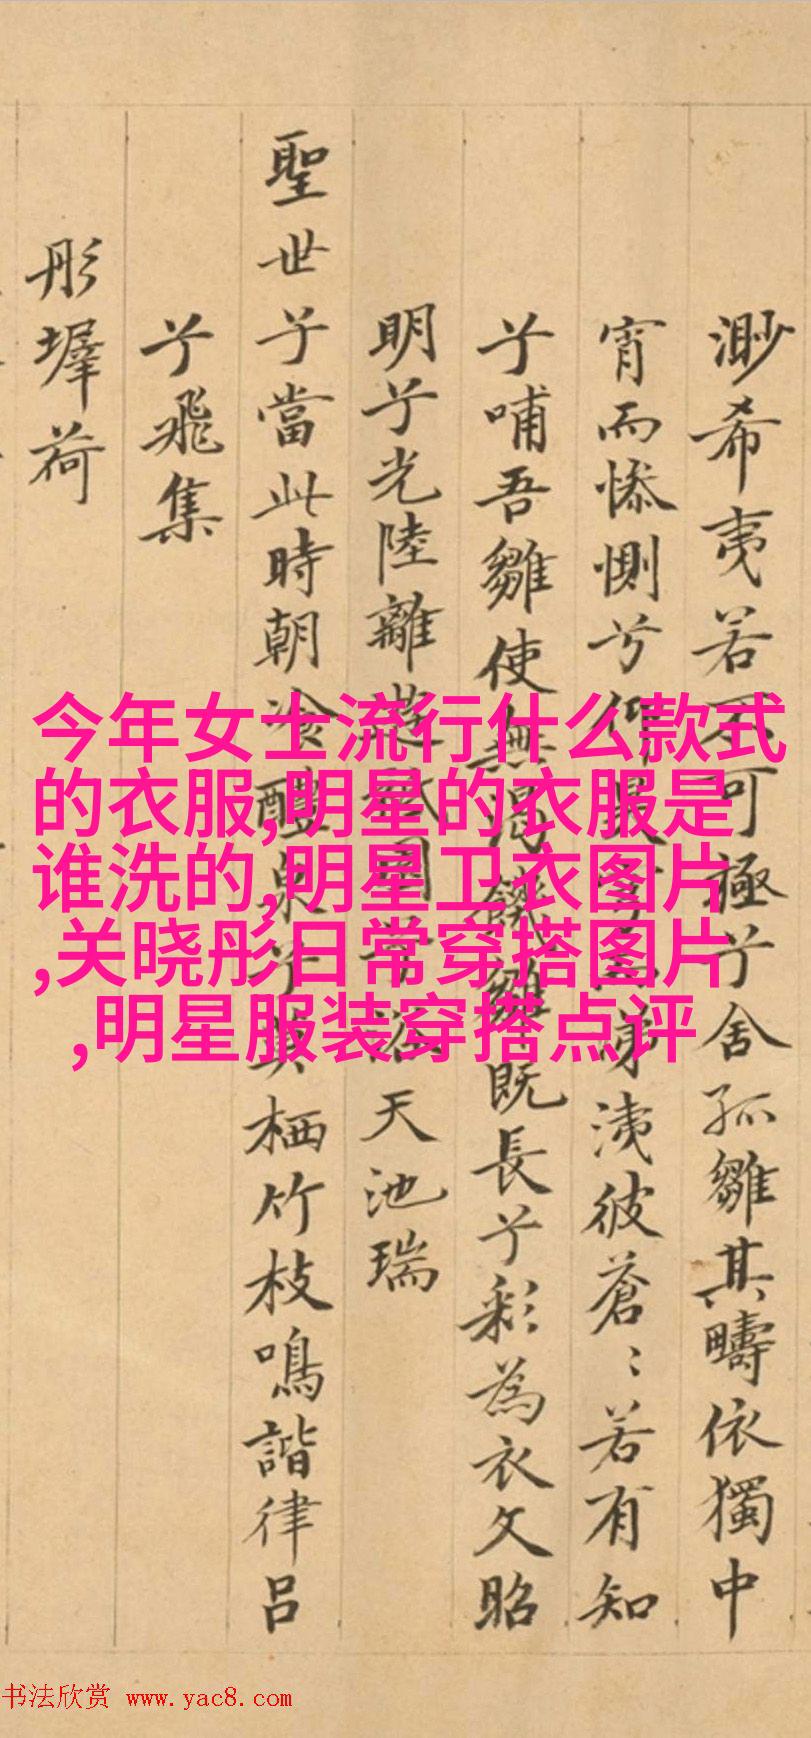 今年女士流行什么款式
的衣服,明星的衣服是
谁洗的,明星卫衣图片
,关晓彤日常穿搭图片
,明星服装穿搭点评
渺希夷若不可極兮舍孤雛其疇依獨中
宵而惨惻兮涕洟彼蒼〻若有知
兮哺吾雛使無渴饑雛既長兮彩為衣文昭
明兮光陸離兮浴天池瑞
聖世兮當此時朝冷醴泉兮莫栖竹枝鳴諧律吕
兮飛集
彤墀荷
书法欣赏 www.yac8.com